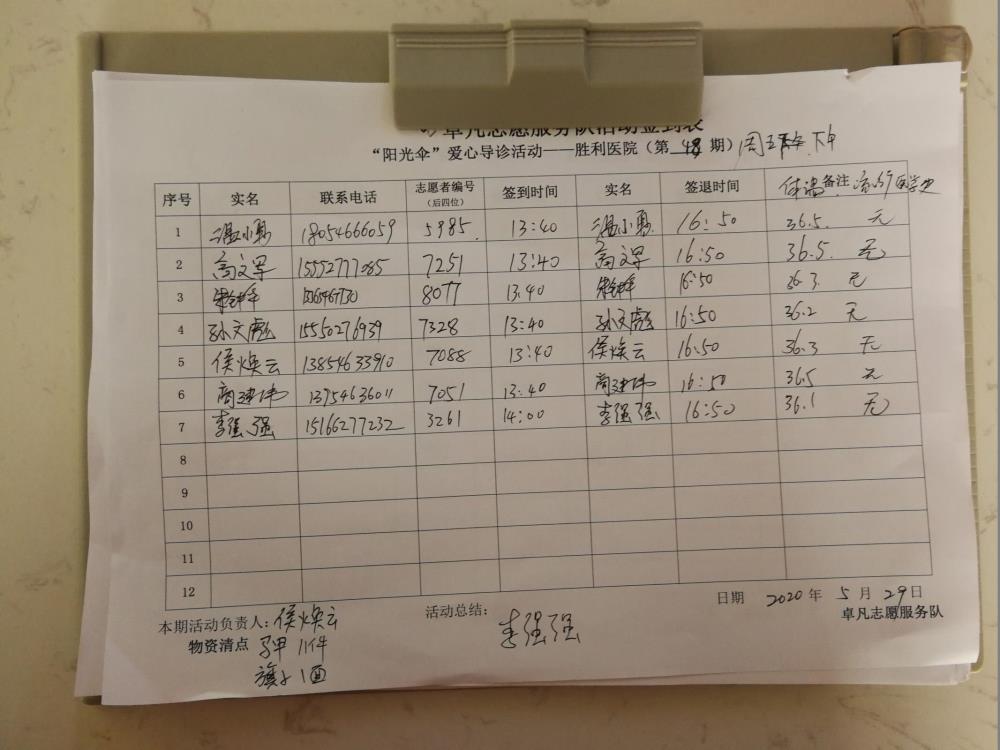 卓凡志愿服务队活动签到表
“阳光伞”爱心导诊活动——胜利医院(第 48 期) 周五 下午
序号 实名 联系电话 志愿者编号(后四位) 签到时间 实名 签退时间 体温 备注 流行病学史
1 温小勇 18054666059 5985 13:40 温小勇 16:50 36.5 无
2 高文军 15552777085 7251 13:40 高文军 16:50 36.5 无
3 8077 13:40 16:50 36.3 无
4 孙文彪 15550276939 7328 13:40 孙文彪 16:50 36.2 无
5 侯焕云 13854633910 7088 13:40 侯焕云 16:50 36.3 无
6 商建伟 13754636011 7051 13:40 商建伟 16:50 36.5 无
7 李强强 15166277232 3261 14:00 李强强 16:50 36.1 无
8
9
10
11
12
日期 2020 年 5 月 29 日
本期活动负责人: 侯焕云 活动总结: 李强强 卓凡志愿服务队
物资清点 马甲 11件
旗子 1面